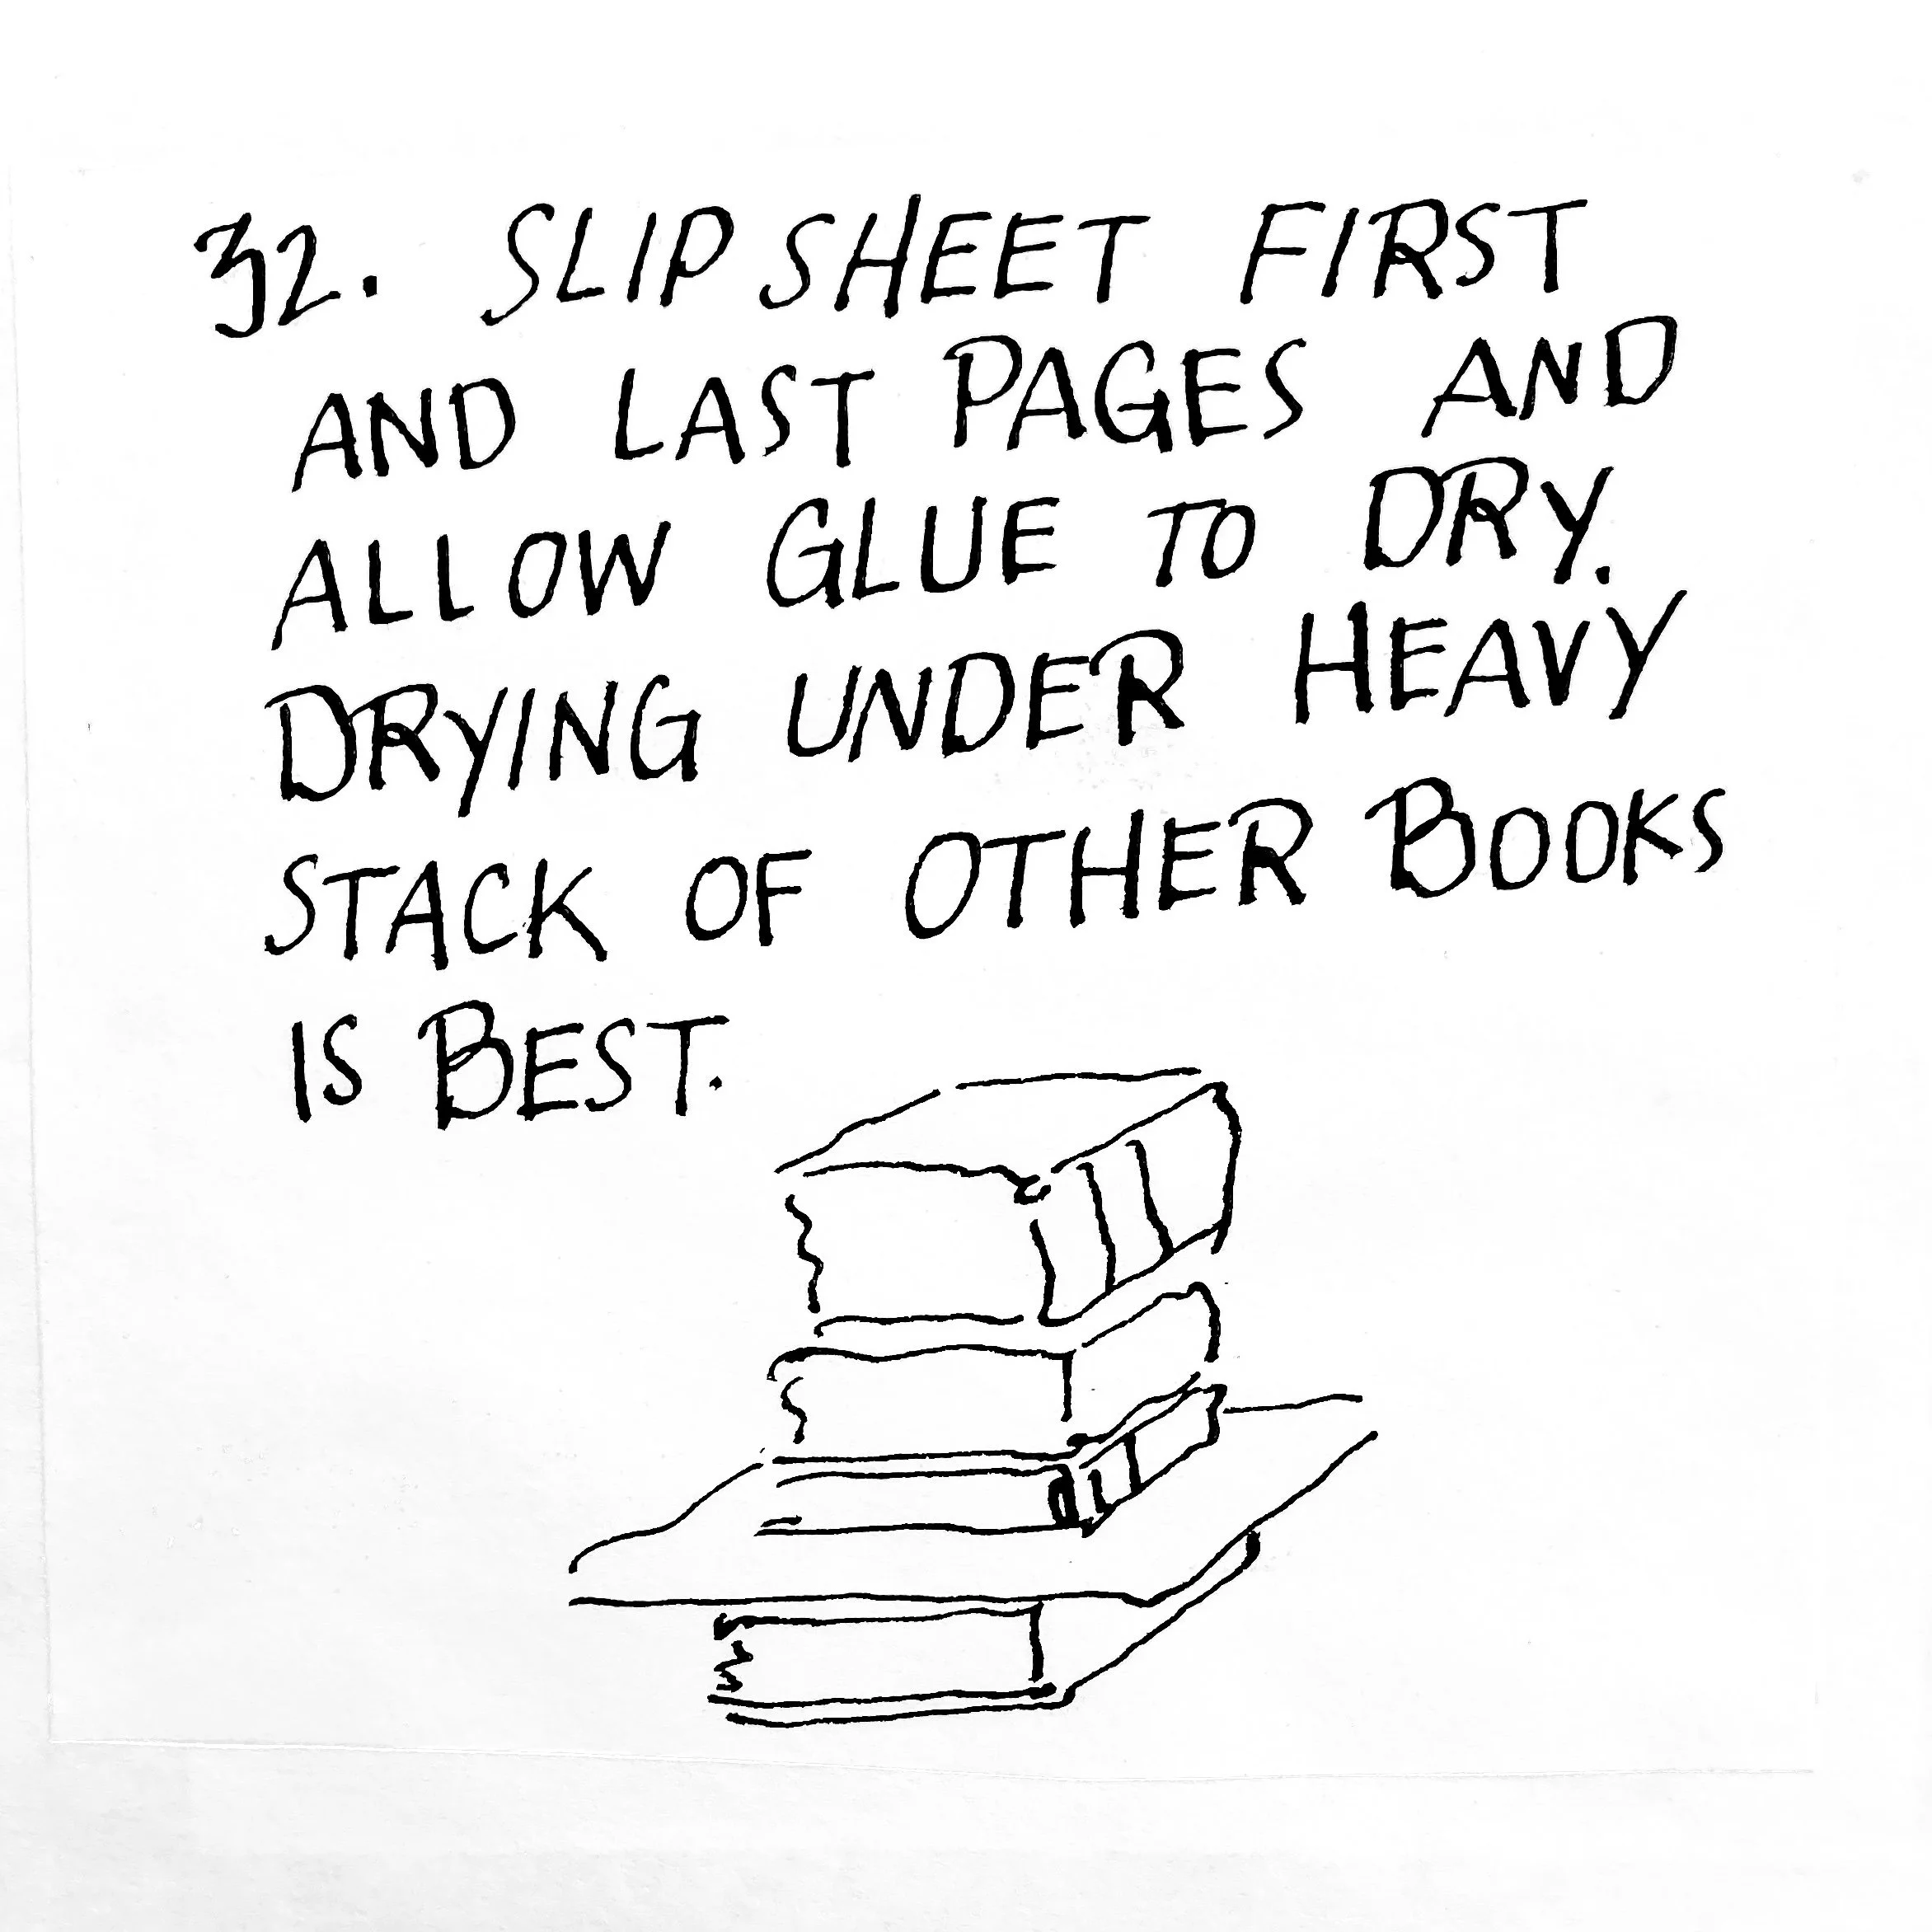 32. SLIP SHEET FIRST
AND LAST PAGES AND
ALLOW GLUE TO DRY.
DRYING UNDER HEAVY
STACK OF OTHER BOOKS
IS BEST.